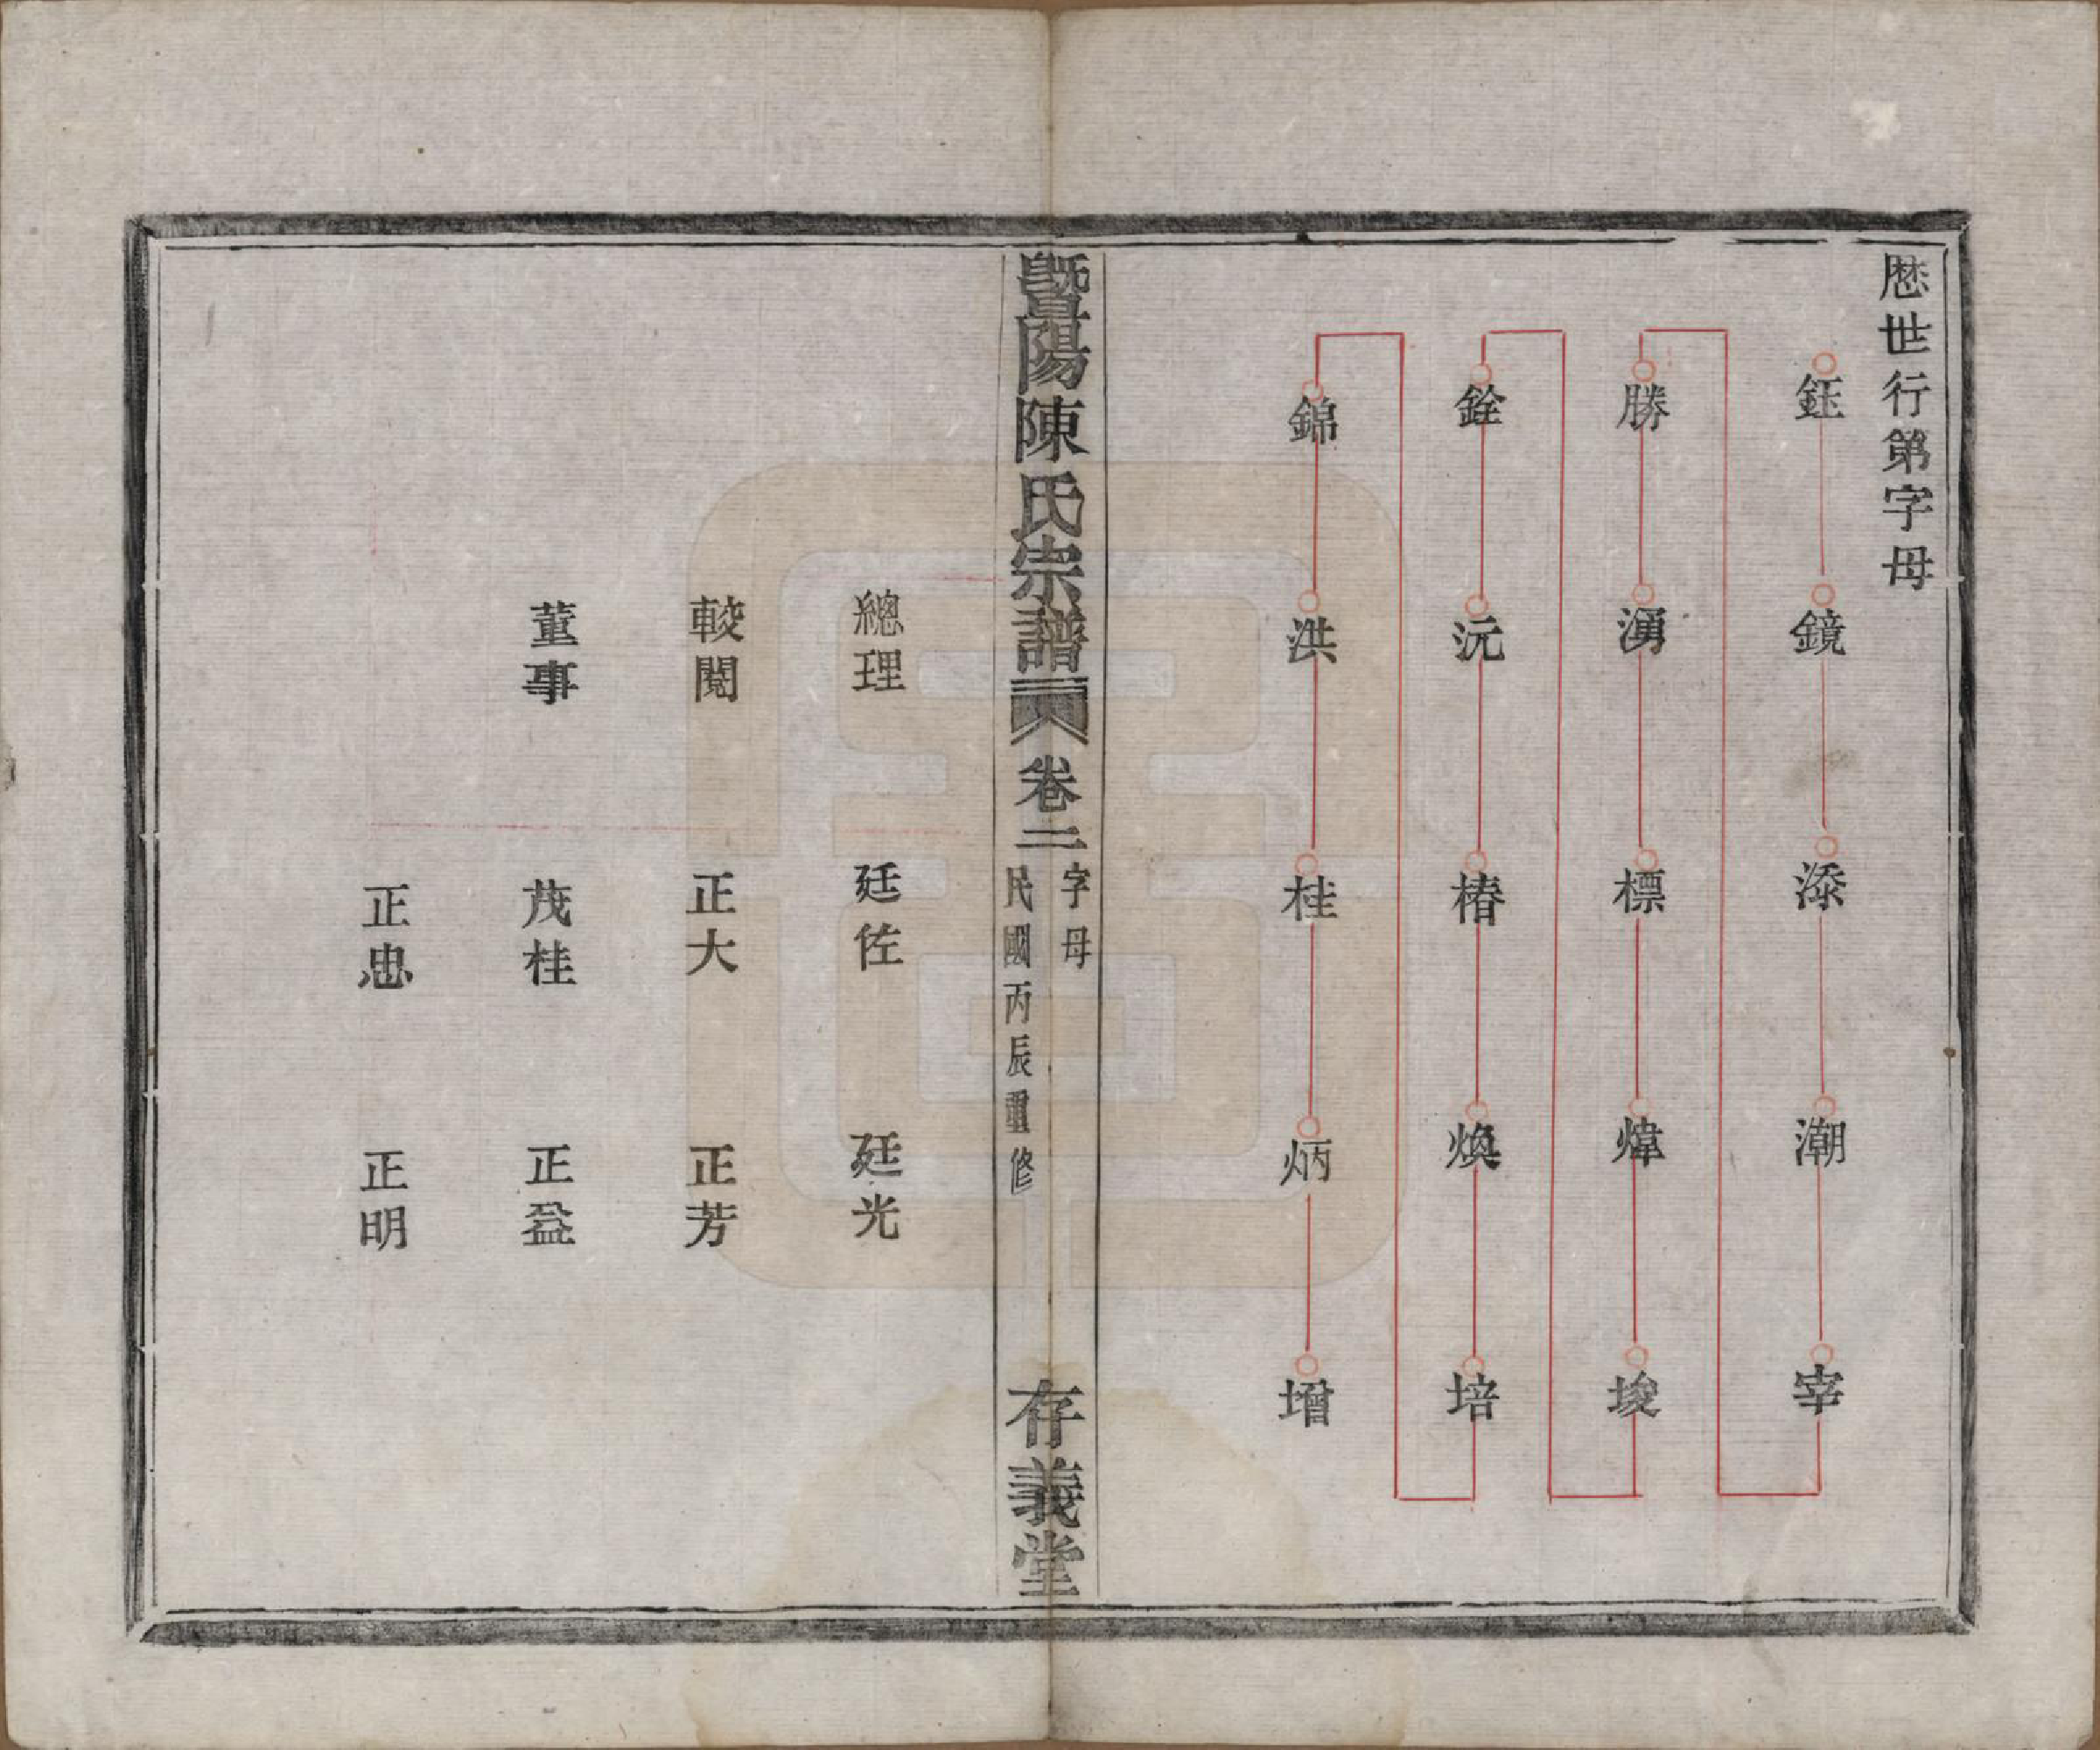 歴世行第字母
鈺 鏡 添 潮 宰
勝 湧 標 煒 埈
銓 沅 椿 煥 培
錦 洪 桂 炳 增
暨陽陳氏宗譜 卷二 字母 民國丙辰重修 存義堂
總理 廷佐 廷光
較閱 正大 正芳
董事 茂桂 正益
正忠 正明